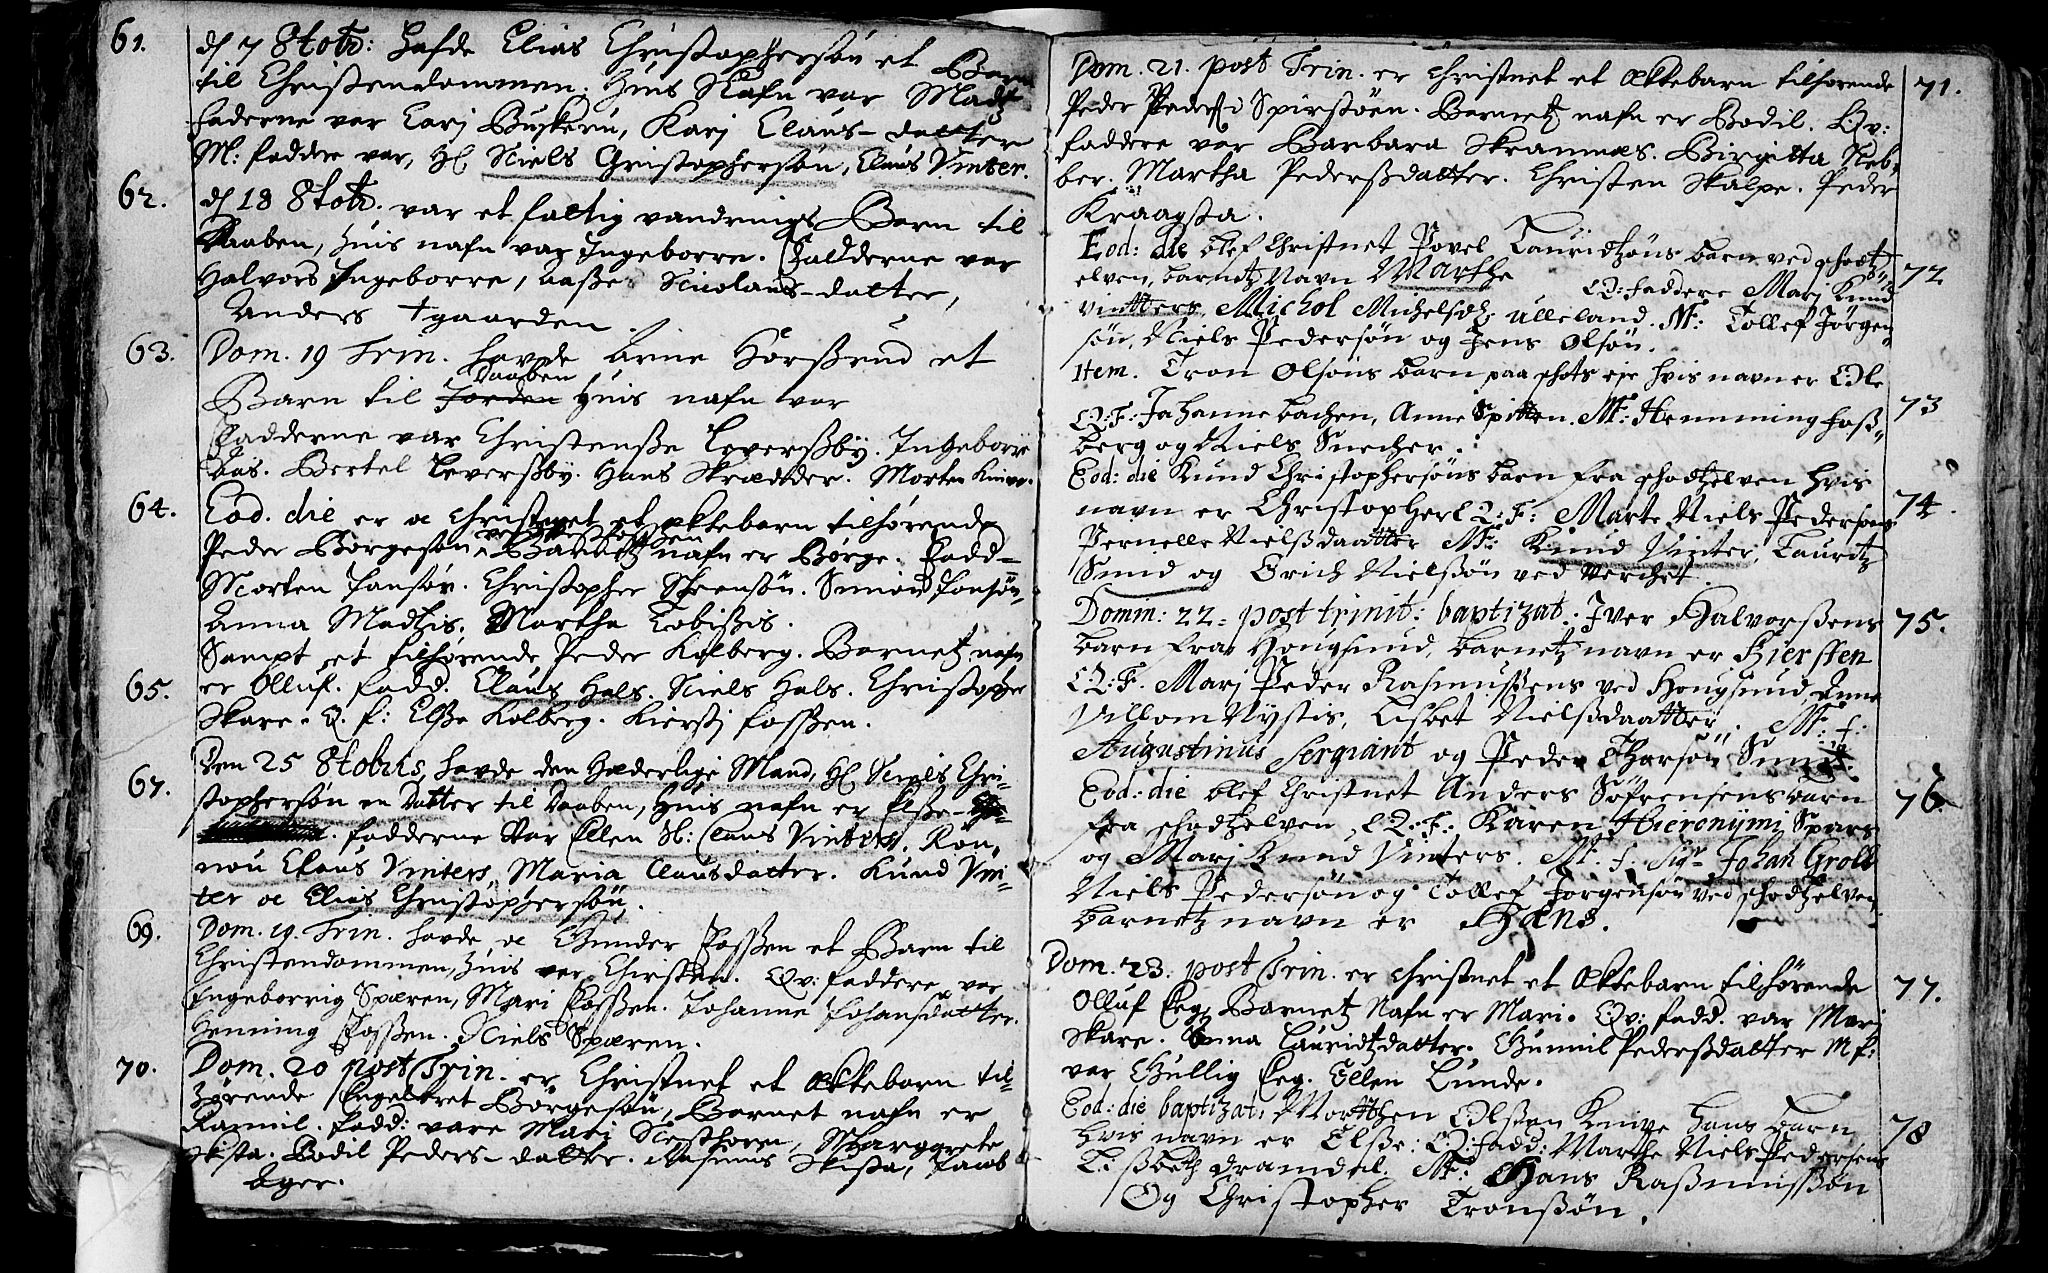 61.
d 7 8totr: Hafde Elias Christophersøn et Barn
til Christendommen. Huis Nafn var Mads
Faderne var Karj Buskeru, Karj Claus-datter
M: faddre var, Hl Niels Christophersøn, Claus Vinter.
62.
d 18 8totr. var et fattig vandrings Barn til
Daaben, Huis nafn var Ingeborre. Fadderne var
Halvors Ingeborre, Aaße Nicolaus-datter,
Anders gaarden.
63.
Dom. 19 Trin. havde Arne Horßrud et
Daaben
Barn til Jorden Huis nafn var
Fadderne var Christenße Leverßby. Ingeborre
Aas. Bertel Leverßby. Hans Skrædder. Morten Knive.
64.
Eod. die er oc Christnet et ektebarn tilhørende
Peder Børgesøn Barnetz nafn er Børge. Fadd-
Morten Jonsøn. Christopher Simon Jonsøn,
Anna Madtzis. Martha Tobißis.
65.
Sampt et tilhørende Peder Kolberg. Barnetz nafn
er Olluf. fadd. Claus Hals. Niels Hals. Christopher
Skare. Q. f: Elße Kolberg. Kierstj Foßen.
67.
Den 25 8tobris, havde den Hæderlige Mand, Hl Niels Chri-
stophersøn en Datter til Daaben, Huis nafn er Elße-
fadderne var Ellen Sl: Claus Vinters, Røn-
nou Claus Vinters, Maria Clausdatter. Knud Vin-
ter oc Elias Christophersøn.
69.
Dom. 19. Trin. havde oc Gunder Foßen et Barn til
Christendommen, Huis var Christen. Qv: faddere var
Ingeborrig Spæren, Mari Foßen. Johanne Johansdatter.
Henning Foßen. Niels Spæren.
70.
Dom. 20 post Trin. er Christnet et Ektebarn til-
hørende Engelbret Børgesøn, Barnet nafn er
Ramil. fadd: vare Mari Margrete
Skista. Bodil Peders-datter. Rasmus Skista, Jacob
Ager.
Dom. 21. post Trin. er christnet et Ektebarn tilhørende 71.
Peder Peders Spirstøen. Barnetz nafn er Bodil. Qv:
faddere var Barbara Skramnes. Birgitta Neb-
ber. Martha Pederßdatter. Christen Skalpe. Peder
Kraagsta.
Eod: die blef Christnet Povel Lauridtzøns barn ved schodtz-
elven, barnetz Navn Marthe Q: faddere Marj Knud 72
Vintters, Michol Michelsdr. Ulleland. M: Tollef Jørgen-
søn, Niels Pedersøn og Jens Olsøn.
Item. Tron Olsøns barn paa schots eje hvis navn er Ole
Q: F: Johanne bachen, Anne Spitten. M: Hemming Foß- 73
berg og Niels Snecher.
Eod: die Knud Christophersøns barn fra schodtzelven hvis
navn er Christopher Q: F: Marte Niels Pedersøns 74.
Pernelle Nielßdaatter M: Knud Vinter, Lauritz
Smid og Erich Nielßøn ved verchet.
Domm: 22 - post trinit: baptizat: Iver Halvorßens 75.
barn fra Hougsund, barnetz navn er Kiersten
Q: F. Marj Peder Rasmußens ved Hougsund, Anne
Villom Nystis, Lisbet Nielßdaatter. M: f:
Augustinus Sergiant og Peder Tharsøn Smid.
Eod: die blef Christnet Anders Søfrensens barn 76
fra schodtzelven, Q: F: Karen Hieronymi Spars
og Marj Knud Vinters. M. f. Sigr Johan Groll
Niels Pedersøn og Tollef Jørgensøn ved schodtzelven
barnetz navn er Hans.
Dom. 23. post Trin. er christnet et Ektebarn tilhørende 77.
Olluf Eeg, Barnetz Nafn er Mari. Qv: fadd. var Marj
Skare. Anna Lauridtzdatter. Gunnil Pederßdatter M f:
var Gullig Eeg. Ellen Lunde.
Eod: die baptizat: Mortthen Olßøn Knive hans barn 78
hvis navn er Elße: Q: Fadd: Marthe Niels Pedersens
Lißbeth dramdal. M: Hans Raßmusßøn
Og Christopher Tronßøn.